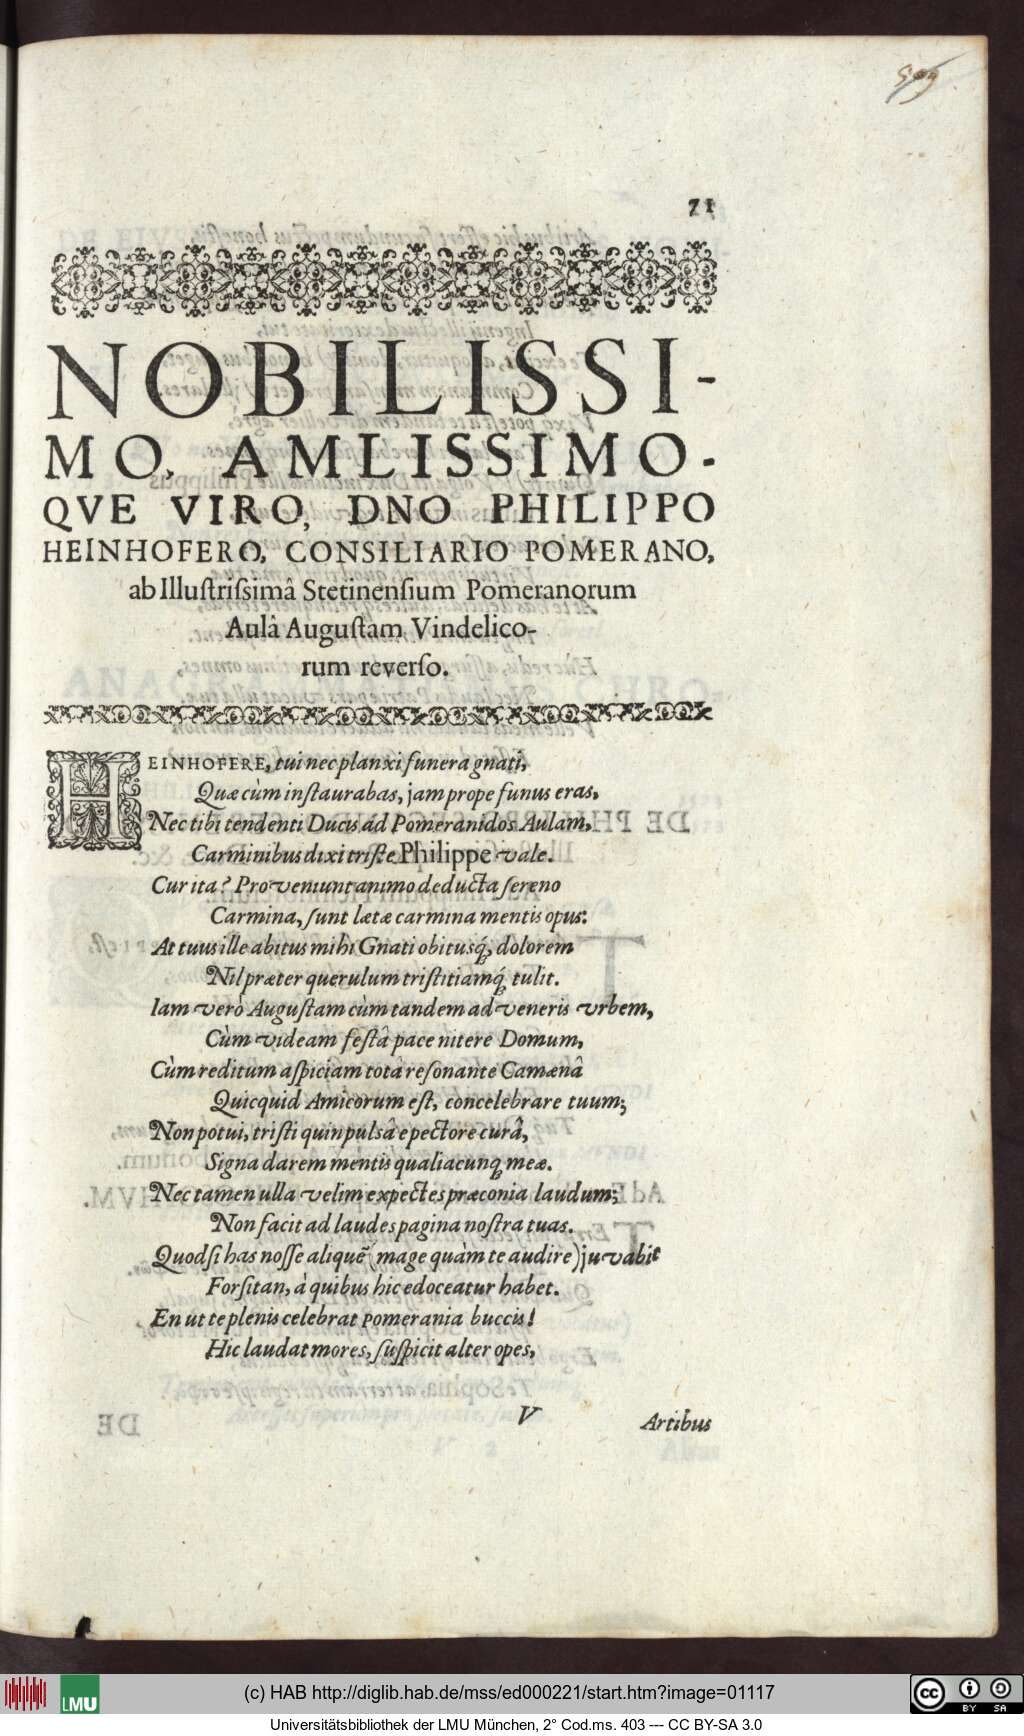 509
71
NOBILISSI-
MO, AMLISSIMO-
QVE VIRO, DNO PHILIPPO
HEINHOFERO, CONSILIARIO POMERANO,
ab Illuſtriſsimâ Stetinenſium Pomeranorum
Aulâ Auguſtam Vindelico-
rum reverſo.
HEINHOFERE, tui nec planxi funera gnati,
Quæ cùm inſtaurabas, jam prope funus eras,
Nec tibi tendenti Ducis ád Pomeranidos Aulam,
Carminibus dixi triſte Philippe vale.
Cur ita? Proveniunt animo deducta ſereno
Carmina, ſunt lætæ carmina mentis opus:
At tuus ille abitus mihi Gnati obitusq́, dolorem
Nil præter querulum triſtitiamq́ tulit.
Iam verò Auguſtam cùm tandem adveneris vrbem,
Cùm videam feſtâ pace nitere Domum,
Cùm reditum aſpiciam totâ reſonante Camænâ
Quicquid Amicorum eſt, concelebrare tuum;
Non potui, triſti quin pulsâ e pectore curâ,
Signa darem mentis qualiacunq meæ.
Nec tamen ulla velim expectes præconia laudum;
Non facit ad laudes pagina noſtra tuas.
Quodſi has noſſe aliquẽ (mage quàm te audire) juvabit
Forſitan, à quibus hic edoceatur habet.
En ut te plenis celebrat Pomerania buccis!
Hic laudat mores, ſuſpicit alter opes,
V Artibus
LMU
(c) HAB http://diglib.hab.de/mss/ed000221/start.htm?image=01117
cc BY SA
Universitätsbibliothek der LMU München, 2° Cod.ms. 403 --- CC BY-SA 3.0